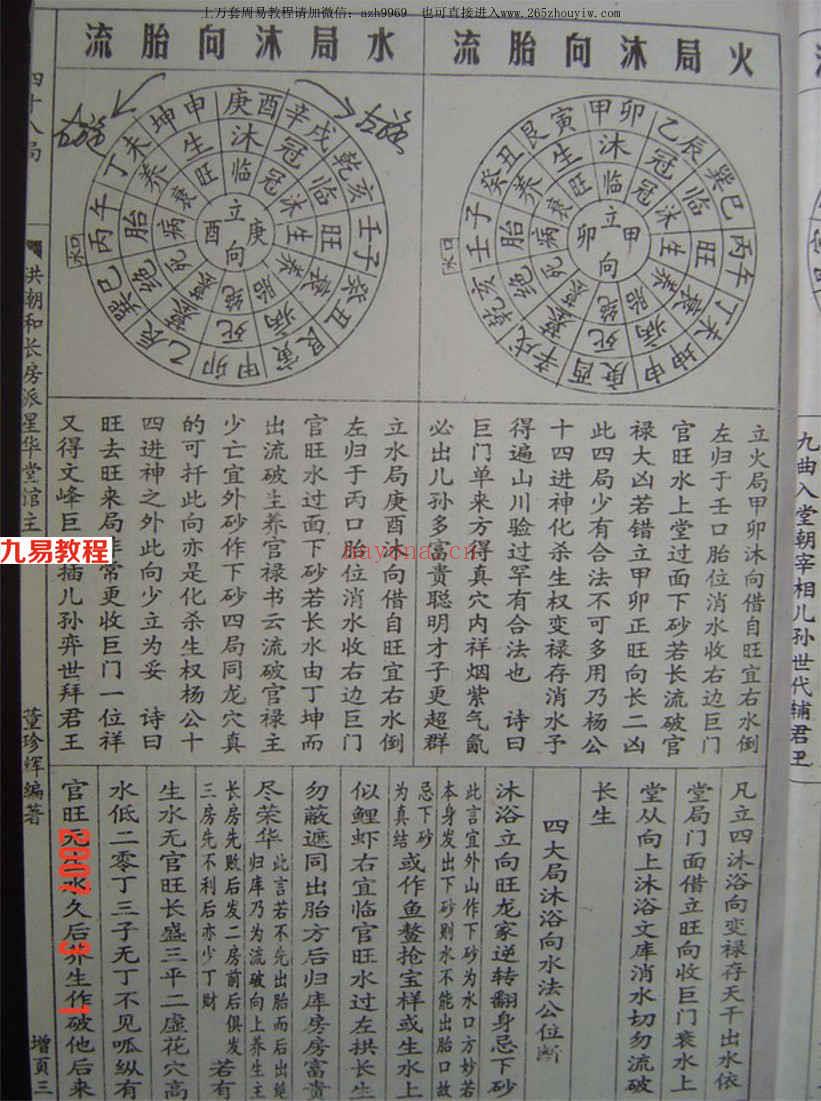 上万套周易教程请加微信：azh9969 也可直接进入www.265zhouyiw.com
火局沐向胎流
甲卯
乙辰
巽巳
丙午
丁未
坤申
庚酉
辛戌
乾亥
壬子
癸丑
艮寅
沐
冠
临
旺
衰
病
死
墓
绝
胎
养
生
临
冠
沐
生
养
胎
绝
墓
死
病
衰
旺
立
甲
向
卯
水口
立火局甲卯沐向借自旺宜右水倒
左归于壬口胎位消水收右边巨门
官旺水上堂过面下砂若长流破官
禄大凶若错立甲卯正旺向长二凶
此四局少有合法不可多用乃杨公
十四进神化杀生权变禄存消水予
得遍山川验过罕有合法也 诗曰
巨门单来方得真穴内祥烟紫气氤
必出儿孙多富贵聪明才子更超群
水局沐向胎流
庚酉
辛戌
乾亥
壬子
癸丑
艮寅
甲卯
乙辰
巽巳
丙午
丁未
坤申
沐
冠
临
旺
衰
病
死
墓
绝
胎
养
生
临
冠
沐
生
养
胎
绝
墓
死
病
衰
旺
立
庚
向
酉
水口
立水局庚酉沐向借自旺宜右水倒
左归于丙口胎位消水收右边巨门
官旺水过面下砂若长水由丁坤而
出流破生养官禄书云流破官禄主
少亡宜外砂作下砂四局同龙穴真
的可扦此向亦是化杀生权杨公十
四进神之外此向少立为妥 诗曰
旺去旺来局非常更收巨门一位祥
又得文峰巨插儿孙弈世拜君王
凡立四沐浴向变禄存天干出水依
堂局门面借立旺向收巨门衰水上
堂从向上沐浴文库消水切勿流破
长生
四大局沐浴向水法公位断
沐浴立向旺龙家逆转翻身忌下砂
此言宜外山作下砂为水口方妙若
本身发出下砂则水不能出胎口故
忌下砂
为真结
或作鱼鳌抢宝样或生水上
似鲤虾右宜临官旺水过左拱长生
勿蔽遮同出胎方后归库房房富贵
尽荣华
此言若不先出胎而后出绝
归库乃为流破向上养生主
长房先败后发二房前后俱发
三房先不利后亦少丁财
若有
生水无官旺长盛三平二虚花穴高
水低二零丁三子无丁不见呱纵有
官旺无生水久后养生作破他后来
四十八局
洪朝和长房派星华堂馆主
董珍辉编著
增页三
九曲入堂朝宰相儿孙世代辅君王
九易教程
nayona.cn
2007 3 1